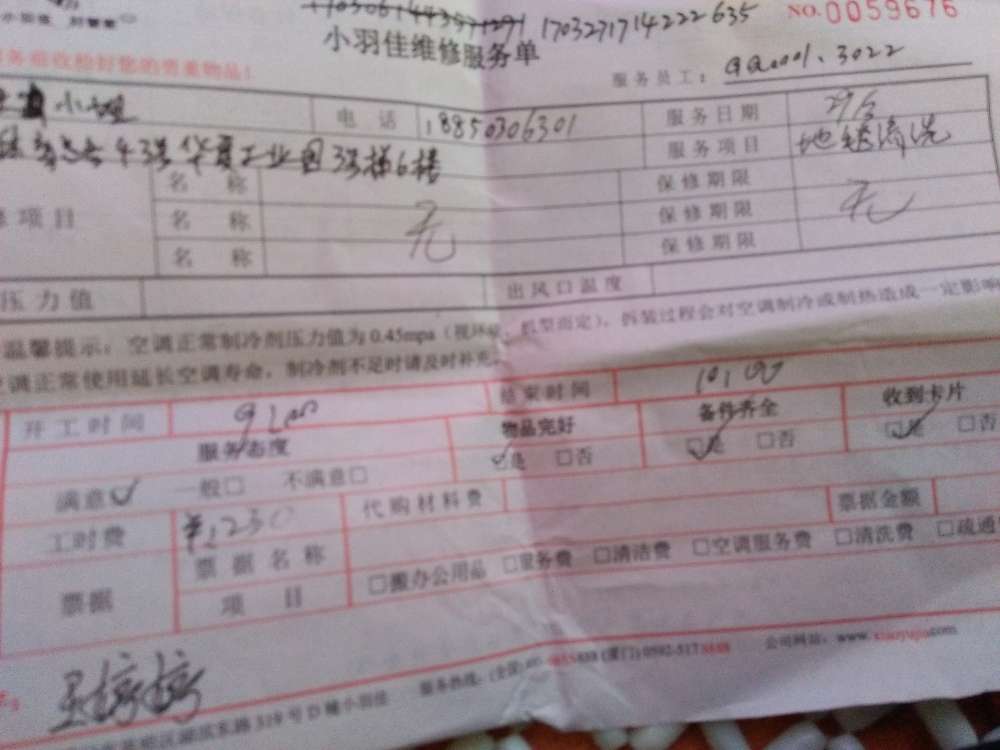 17032717142222635
NO.0059676
小羽佳维修服务单
服务员工：
3022
小姐
电 话
18850306301
服务日期
43号华夏工业园3号楼6楼
服务项目
地毯清洗
项目
名 称
无
保修期限
无
名 称
保修期限
名 称
保修期限
压力值
出风口温度
温馨提示：空调正常制冷剂压力值为0.45mpa（视环境、机型而定），拆装过程会对空调制冷或制热造成一定影响
调正常使用延长空调寿命，制冷剂不足时请及时补充
开工时间
结束时间
服务态度
物品完好
备件齐全
收到卡片
满意 一般 不满意
是 否
是 否
是 否
工时费
代购材料费
票据金额
票据
票据名称
项 目
搬办公用品 家务费 清洁费 空调服务费 清洗费 疏通
服务热线：
0592-5178888
公司网站：www.xiaoyujia.com
319号D幢小羽佳